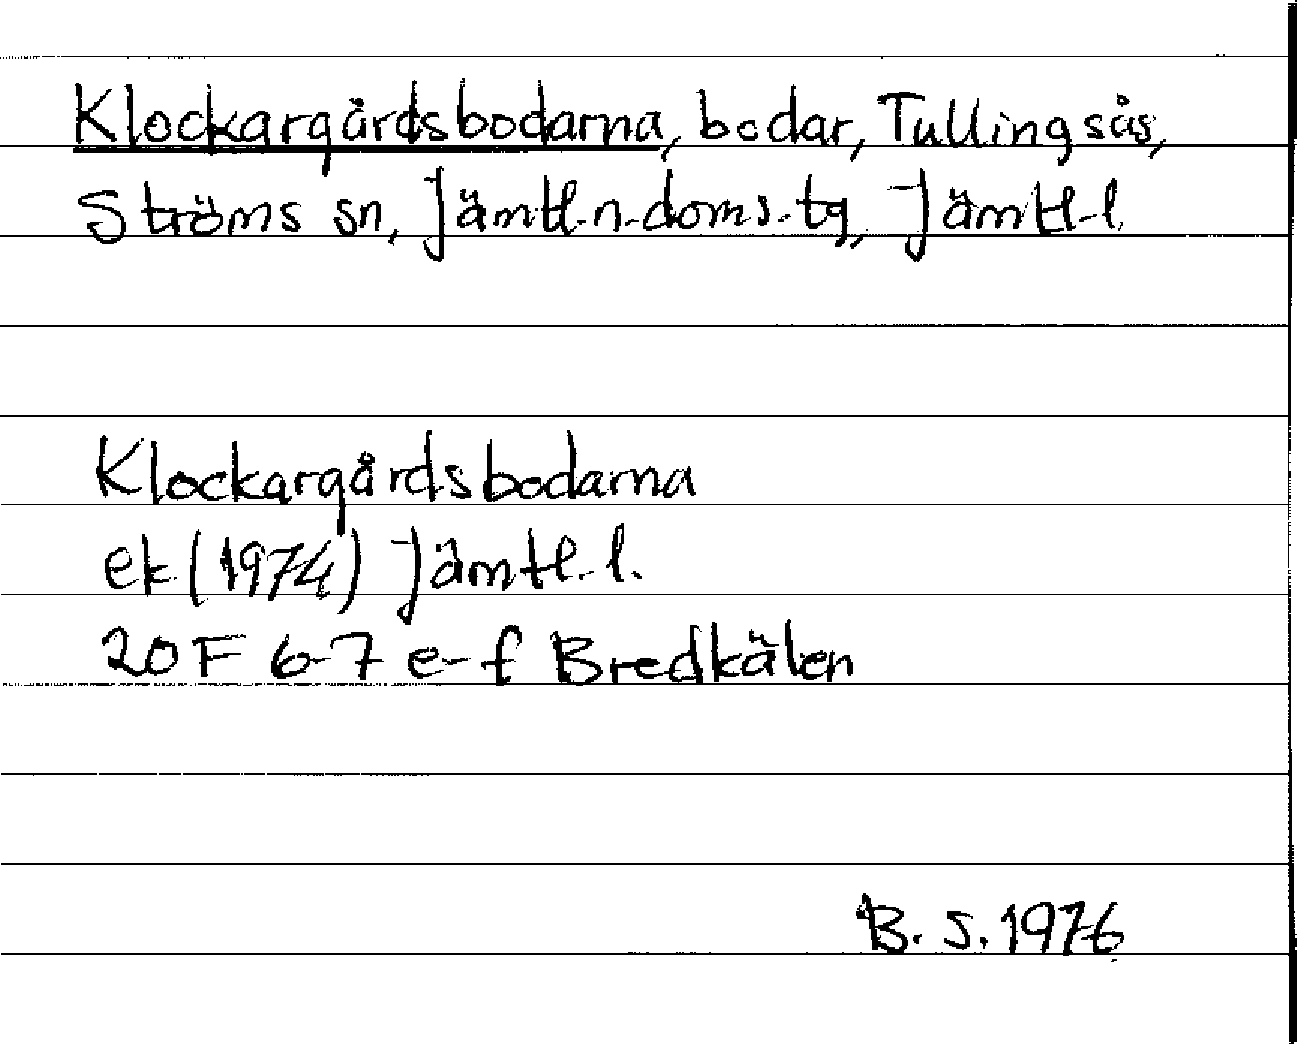 Klockargårdsbodarna, bodar, Tullingsås,
Ströms sn, Jämtl.n.doms.tg, Jämtl.l.
Klockargårdsbodarna
ek (1974) Jämtl.l.
20F 6-7 e-f Bredkälen
B. S. 1976